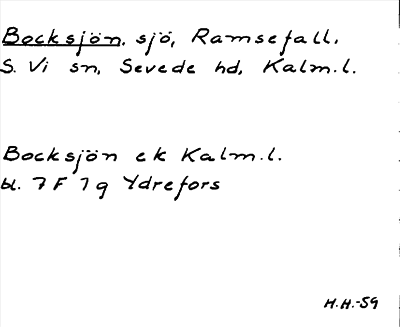 Bocksjön. sjö, Ramsefall.
S. Vi sn, Sevede hd, Kalm.l.
Bocksjön ek Kalm.l.
bl. 7 F 7g Ydrefors
H.H.-59